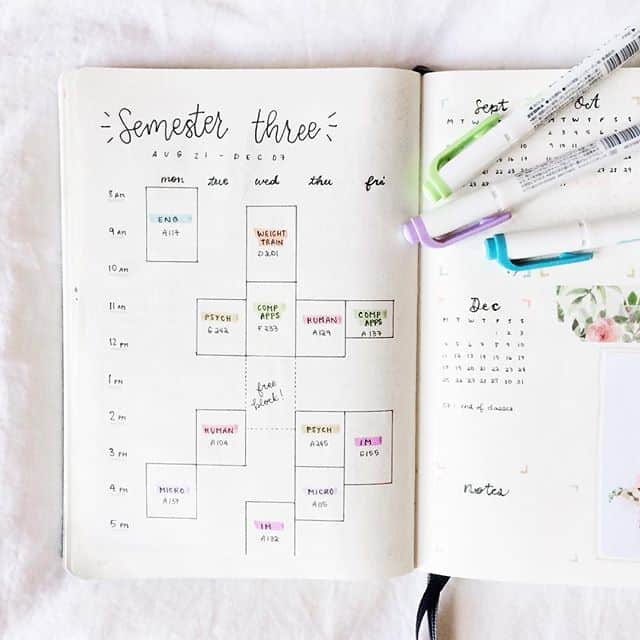 Semester three
AUG 21 - DEC 07
mon tue wed thu fri
8 AM
9 AM
10 AM
11 AM
12 PM
1 PM
2 PM
3 PM
4 PM
5 PM
ENG
A117
WEIGHT
TRAIN
D201
PSYCH
G242
COMP
APPS
F233
HUMAN
A129
COMP
APPS
A137
free
block!
HUMAN
A104
PSYCH
A245
IM
G155
MICRO
MICRO
IM
A132
Sept
Oct
Dec
M T W T F S S
1 2 3
4 5 6 7 8 9 10
11 12 13 14 15 16 17
18 19 20 21 22 23 24
25 26 27 28 29 30 31
07: end of classes
Notes